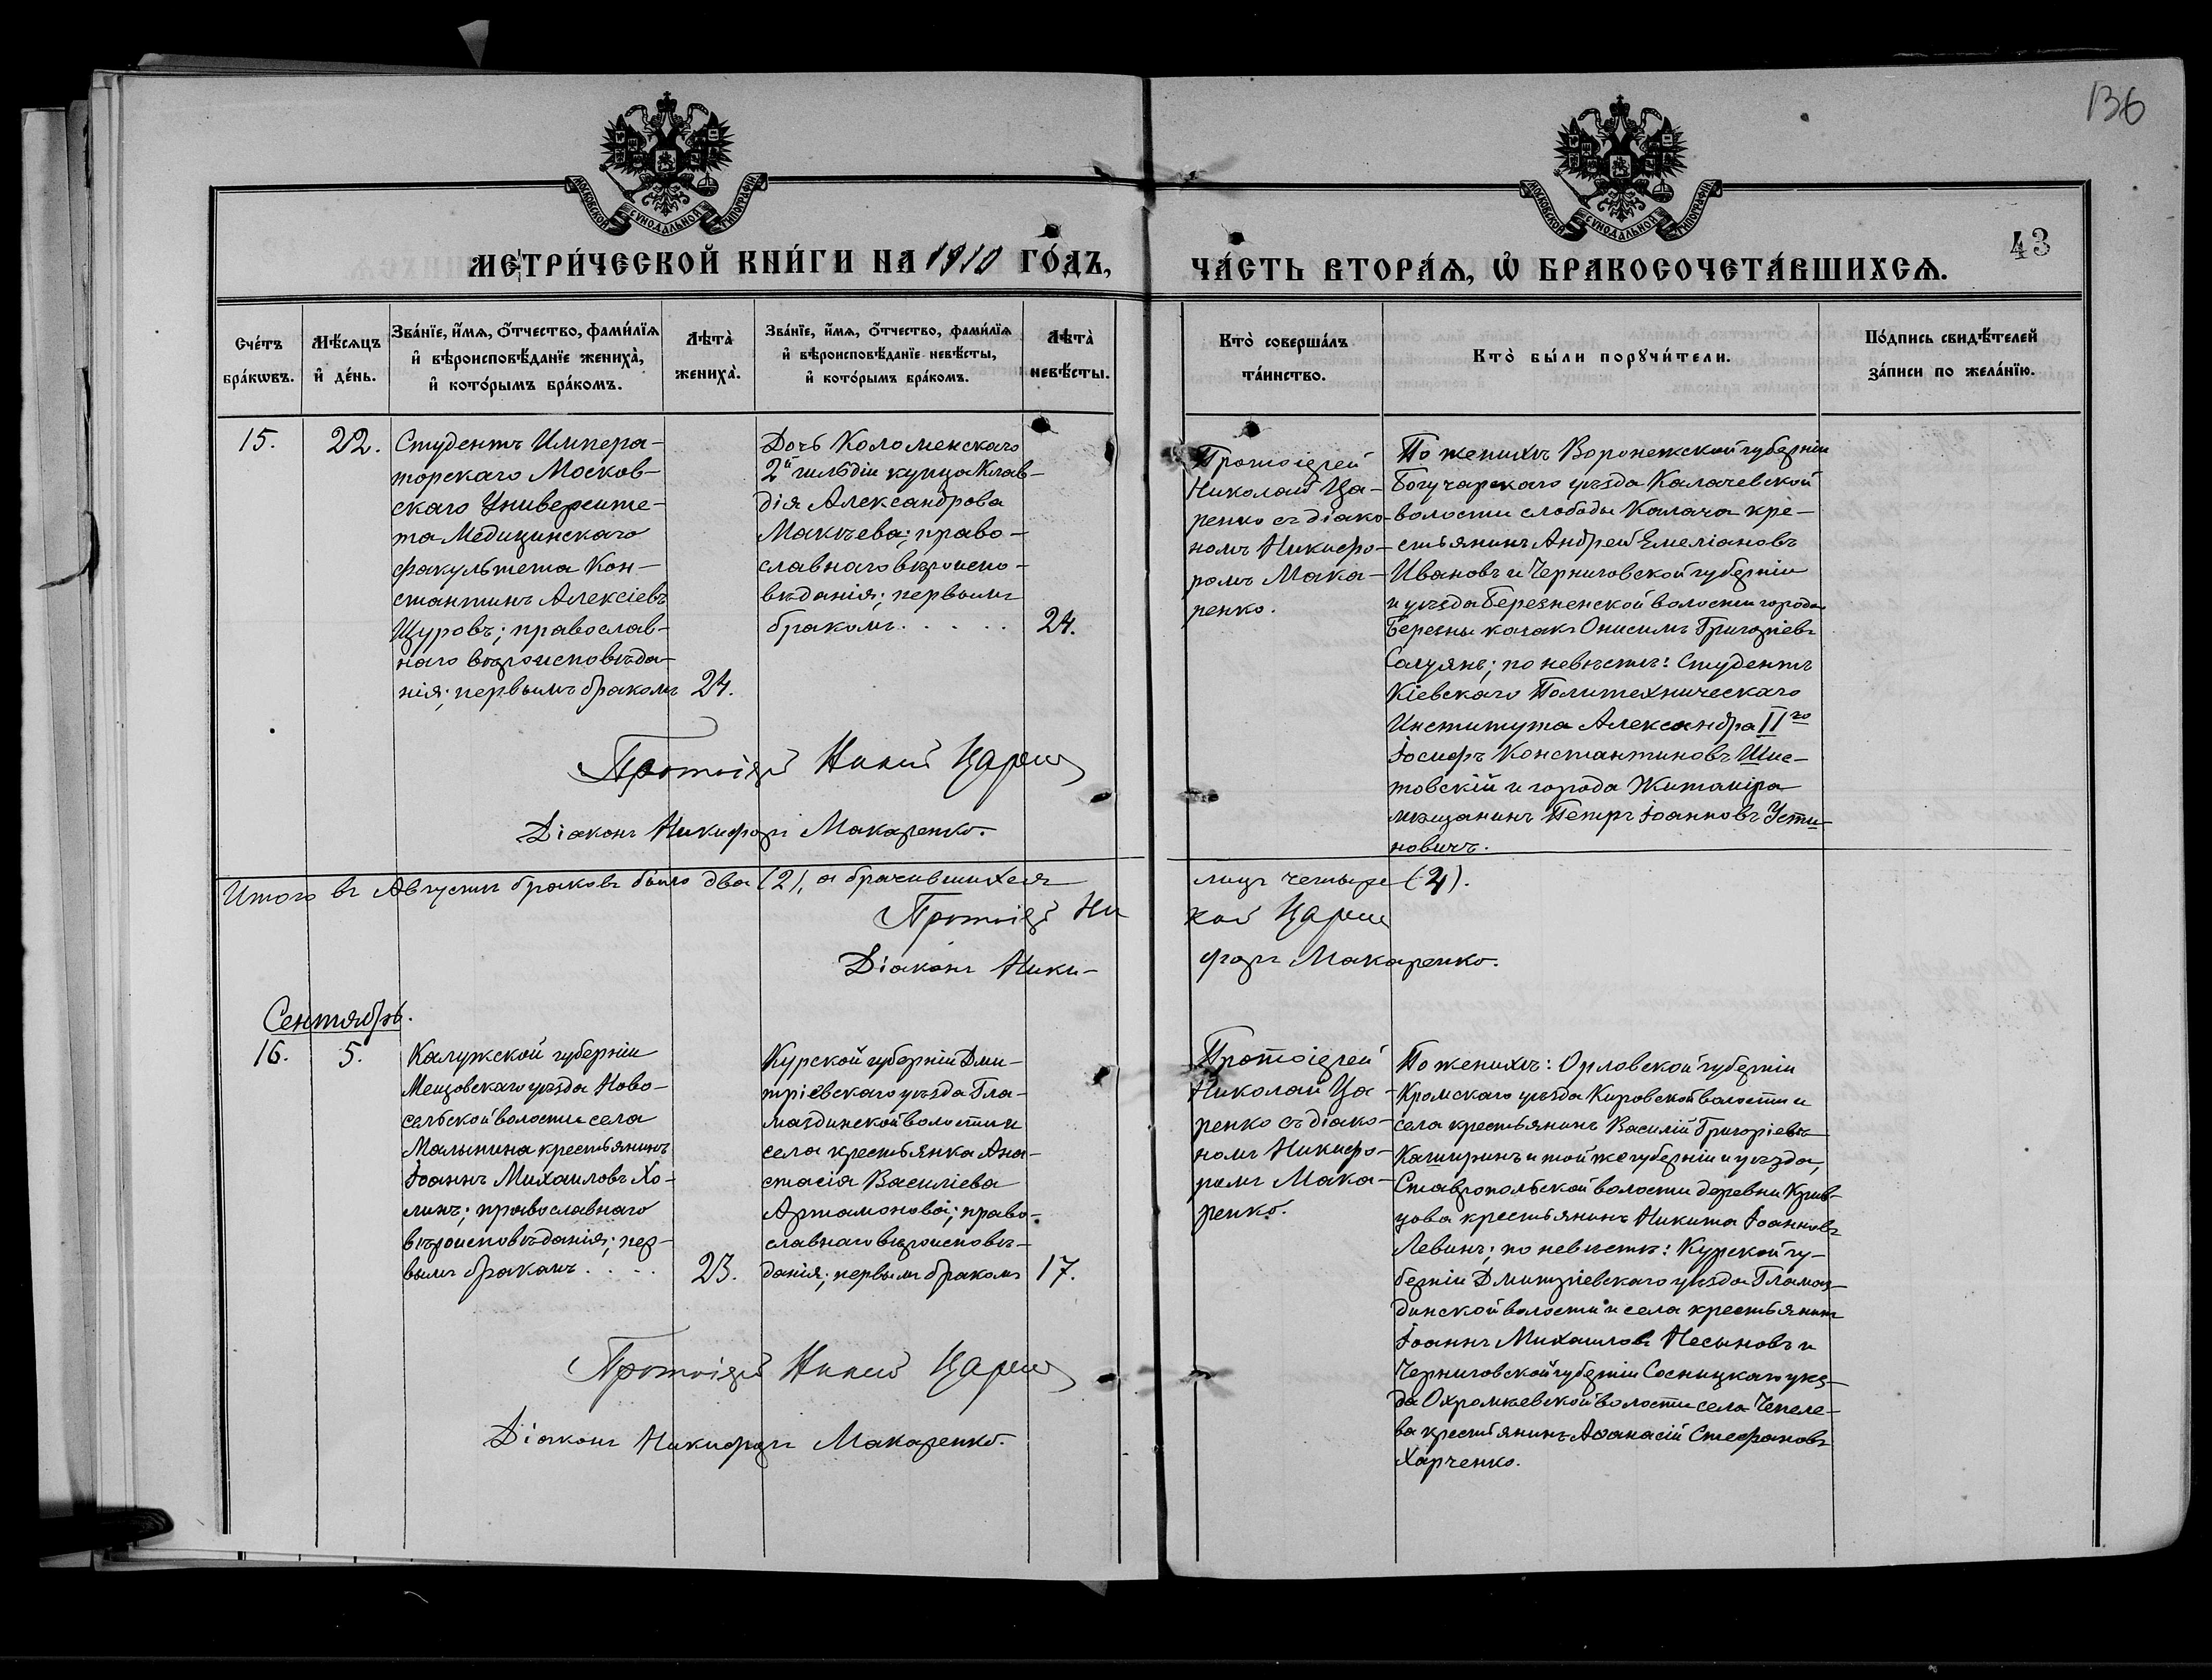 136
43
МОСКОВСКОЙ СУНОДАЛЬНОЙ ТИПОГРАФІИ
МОСКОВСКОЙ СУНОДАЛЬНОЙ ТИПОГРАФІИ
МЕТРИ́ЧЕСКОЙ КНИ́ГИ НА 1910 ГО́ДЪ,
ЧА́СТЬ ВТОРА́Ѧ, Ѽ БРАКОСОЧЕТА́ВШИХСѦ.
Сче́тъ
бра́кѡвъ.
Мѣ́сѧцъ
и҆ де́нь.
Зва́нїе, и҆́мѧ, ѻ҆́тчество, фами́лїѧ
и҆ вѣроисповѣ́данїе жениха̀,
и҆ кото́рымъ бра́комъ.
Лѣта̀
жениха̀.
Зва́нїе, и҆́мѧ, ѻ҆́тчество, фами́лїѧ
и҆ вѣроисповѣ́данїе невѣ́сты,
и҆ кото́рымъ бра́комъ.
Лѣта̀
невѣ́сты.
Кто̀ соверша́лъ
та́инство.
Кто̀ бы́ли порꙋчи́тели.
По́дпись свидѣ́телей
за́писи по жела́нїю.
15.
22.
Студентъ Импера-
торскаго Москов-
скаго Университе-
та Медицинскаго
факультета Кон-
стантинъ Алексіевъ
Щуровъ; православ-
наго вѣроисповѣда-
нія; первымъ бракомъ
24.
Дочь Коломенскаго
2й гильдіи купца Клав-
дія Александрова
Макѣева; право-
славнаго вѣроиспо-
вѣданія; первымъ
бракомъ . . . . .
24.
Протоіерей
Николай Ца-
ренко съ діако-
номъ Никифо-
ромъ Мака-
ренко.
По женихѣ Воронежской губерніи
Богучарскаго уѣзда Калачевской
волости слободы Калача кре-
стьянинъ Андрей Емеліановъ
Ивановъ и Черниговской губерніи
и уѣзда Березненской волости города
Березны казакъ Онисимъ Григоріевъ
по невѣстѣ: Студентъ
Кіевскаго Политехническаго
Института Александра IIго
Іосифъ Константиновъ Шис-
товскій и города Житоміра
мѣщанинъ Петръ Іоанновъ Усти-
новичъ.
Протоіерей Никол Царен
Діаконъ Никифоръ Макаренко.
Итого въ Августѣ браковъ было два (2), а брачившихся
лицъ четыре (4).
Протоіерей Ни
кол Царен
Діаконъ Ники-
форъ Макаренко.
Сентябрь.
16.
5.
Калужской губерніи
Мещовскаго уѣзда Ново-
сельской волости села
Малынина крестьянинъ
Іоаннъ Михаиловъ Хо-
линъ; православнаго
вѣроисповѣданія; пер-
вымъ бракомъ . . . .
23.
Курской губерніи Дми-
тріевскаго уѣзда Гла-
маздинской волости и
села крестьянка Ана-
стасія Василіева
Артамонова; право-
славнаго вѣроисповѣ-
данія; первымъ бракомъ
17.
Протоіерей
Николай Ца-
ренко съ діако-
номъ Никифо-
ромъ Мака-
ренко.
По женихѣ: Орловской губерніи
Кромскаго уѣзда Кировской волости и
села крестьянинъ Василій Григоріевъ
Каширинъ и той же губерніи и уѣзда,
Ставропольской волости деревни Крив-
цова крестьянинъ Никита Іоанновъ
Левинъ; по невѣстѣ: Курской гу-
берніи Дмитріевскаго уѣзда Гламаз-
динской волости и села крестьянинъ
Іоаннъ Михаиловъ Песыновъ и
Черниговской губерніи Сосницкаго уѣз-
да Охромѣевской волости села Чепеле-
ва крестьянинъ Аѳанасій Стефановъ
Харченко.
Протоіерей Никол Царен
Діаконъ Никифоръ Макаренко.